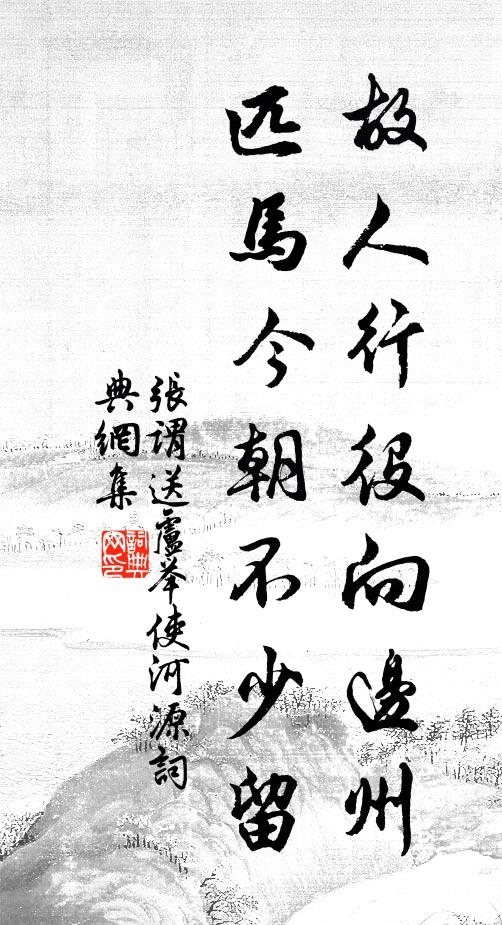 故人行役向邊州
匹馬今朝不少留
張謂送盧舉使河源詞
典網集
詞典網印